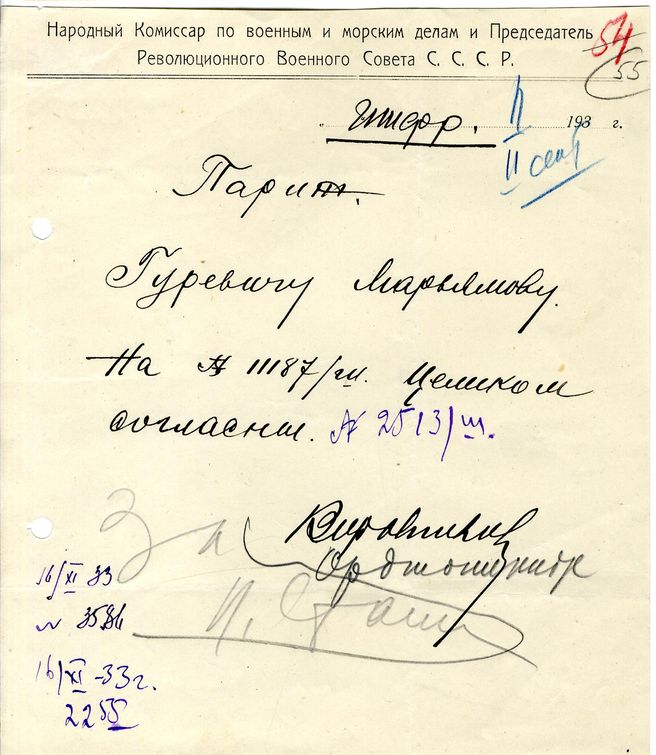 Народный Комиссар по военным и морским делам и Председатель
Революционного Военного Совета С. С. С. Р.
54
55
Шифр. 193 г.
II сект
Париж.
Гуревичу Марьямову.
На № 11187/ш. Целиком
согласны. № 2513/ш.
За
Ворошилов
Орджоникидзе
И. Сталин
16/XI 33
16/XI-33г.
2255